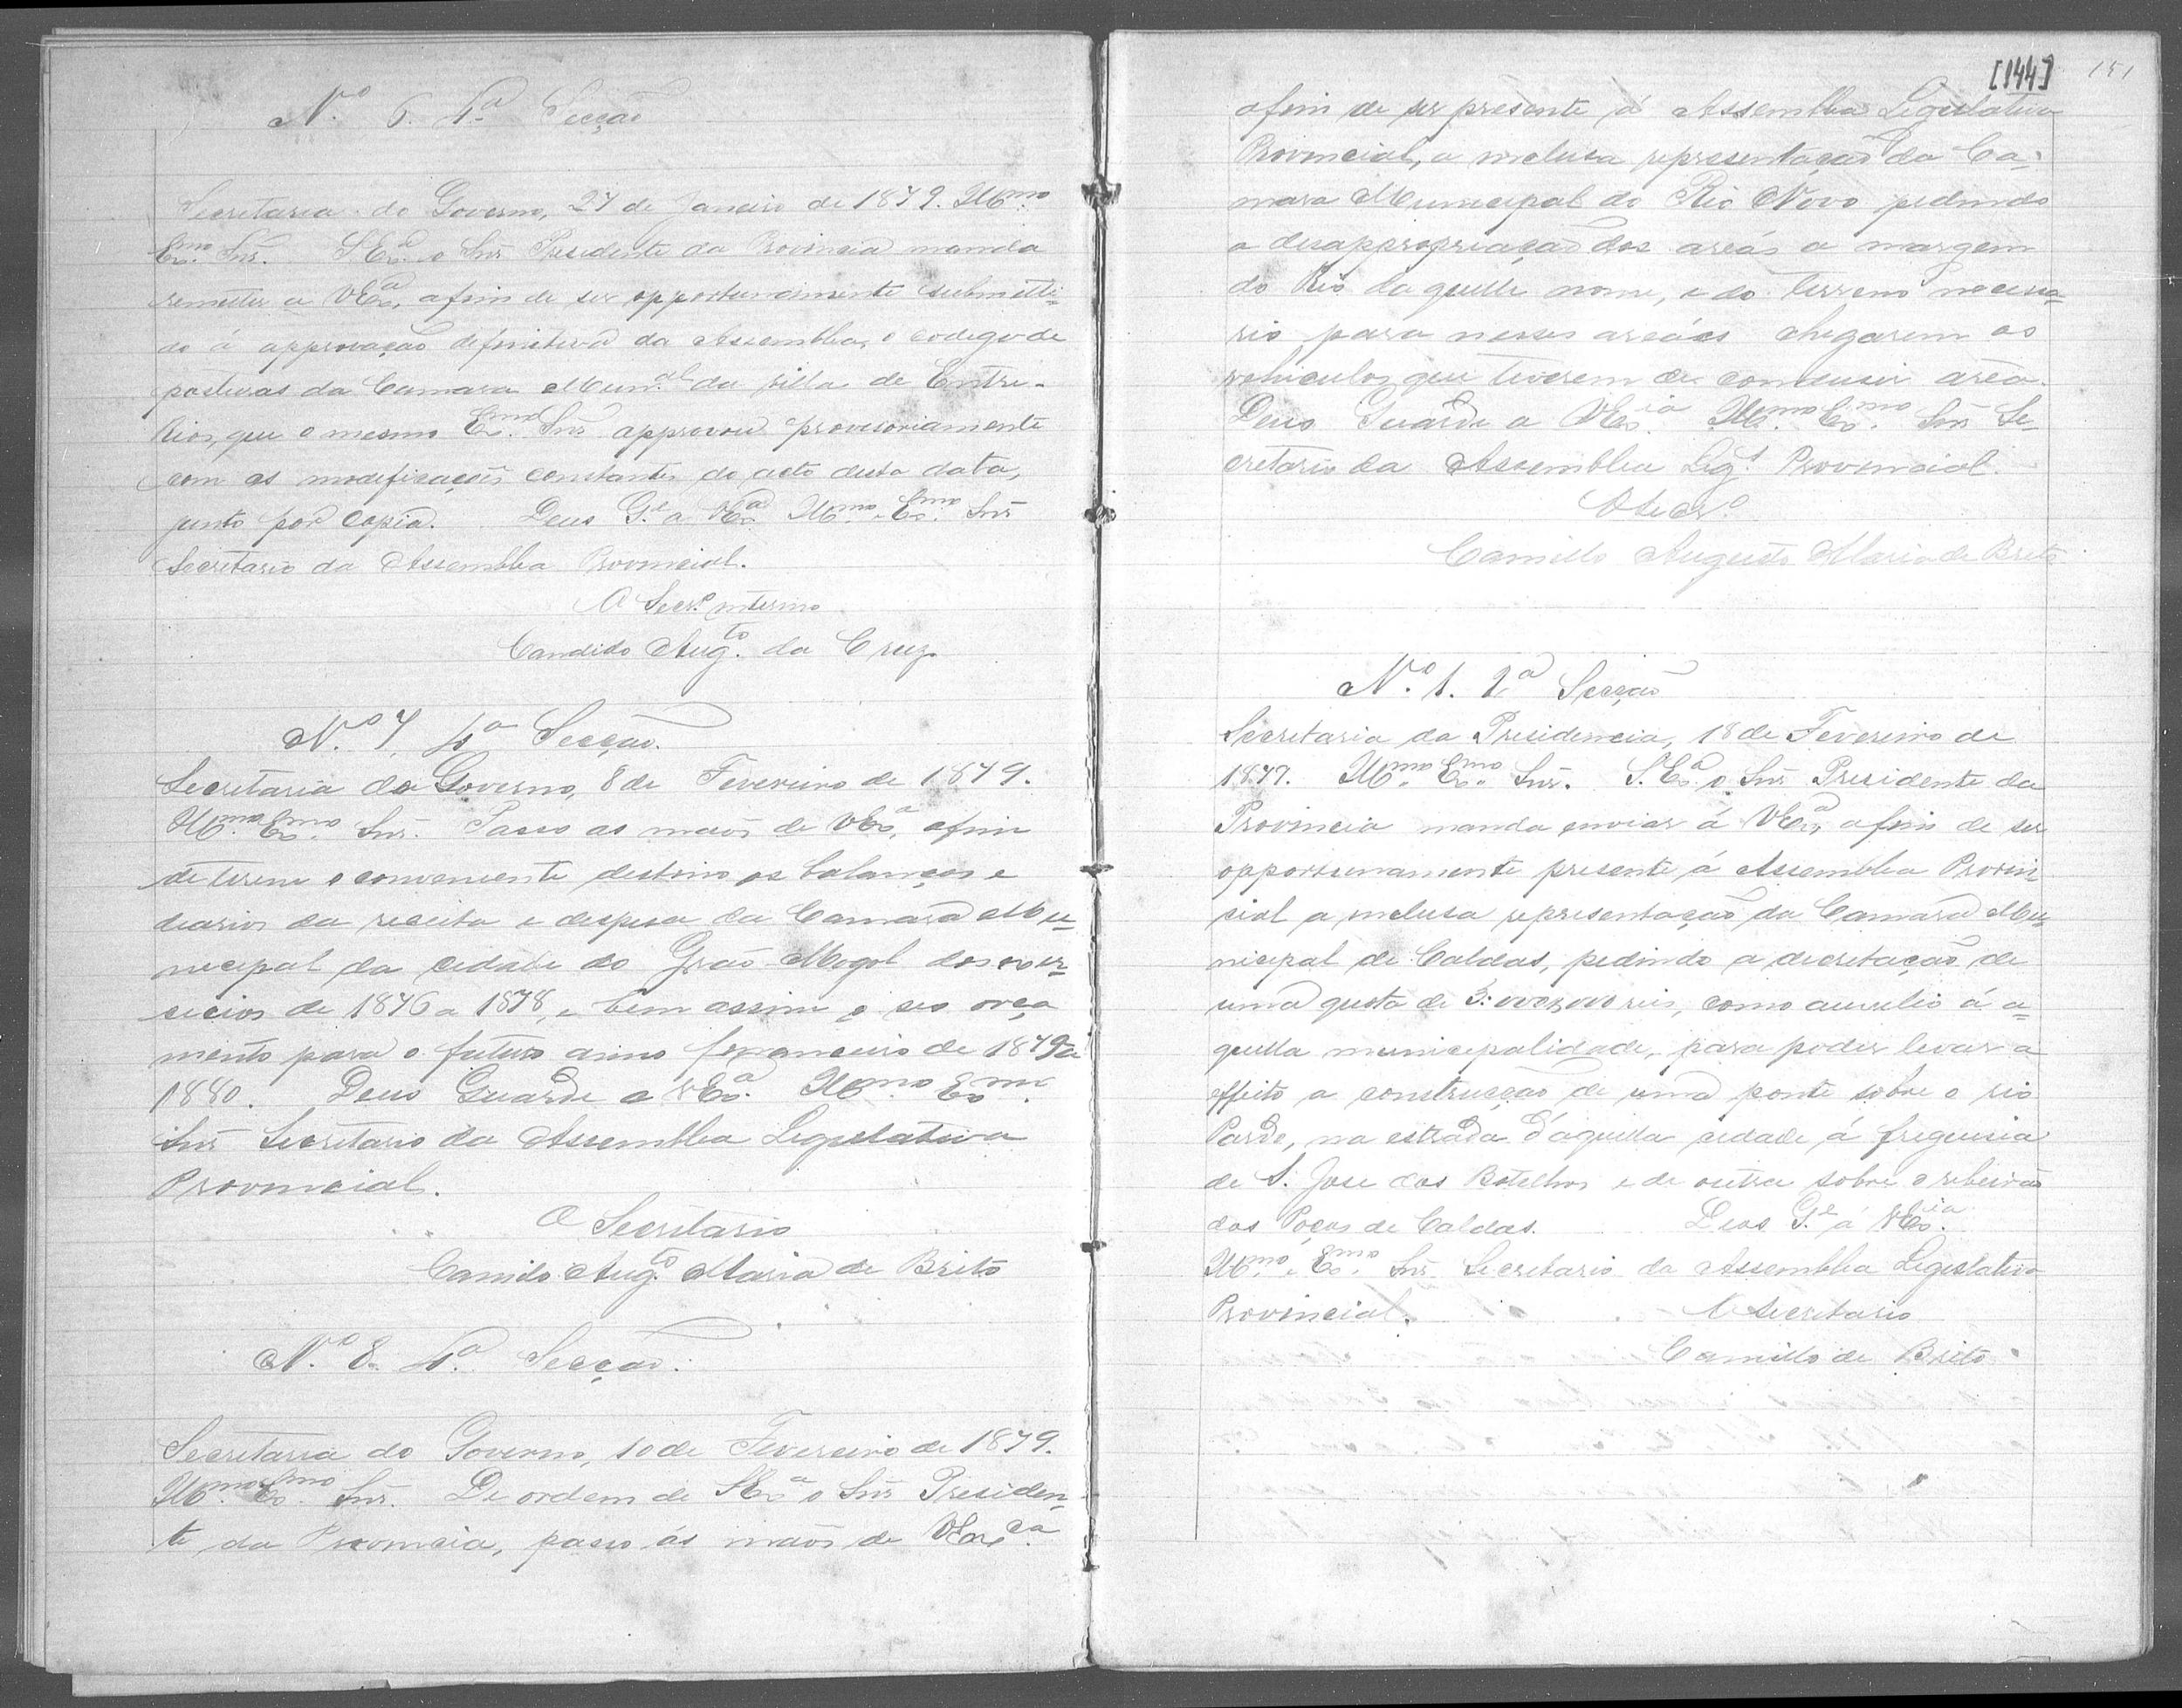 Nº 6. 4ª Secção
Secretaria do Governo, 27 de Janeiro de 1879. Illmo
Exmo. Snr. S. Exª. o Snr Presidente da Provincia manda
remetter a VExª, afim de ser opportunamente submetti-
do á approvação definitiva da Assemblea, o codigo de
posturas da Camara Mun.al da villa de Entre-
Rios, que o mesmo Exmo. Snr approvou provisoriamente
com as modificações constantes do acto desta data,
junto por copia. Deus G.e a VExª. Illmo. Exmo. Snr
Secretario da Assemblea Provincial.
O Secrº interino
Candido Aug.to da Cruz.
Nº 7. 4ª Secção.
Secretaria do Governo, 8 de Fevereiro de 1879.
Illmo. Exmo. Snr. Passo as mãos de VExª, afim
de terem o conveniente destino os balanços e
diarios da receita e despesa da Camara Mu-
nicipal da cidade do Grão Mogol dos exer-
cicios de 1876 a 1878, e bem assim o seo orça
mento para o futuro anno financeiro de 1879 á
1880. Deus Guarde a VExª. Illmo. Exmo.
Snr Secretario da Assemblea Legislativa
Provincial.
O Secretario
Camilo Aug.to Maria de Brito
Nº 8. 4ª Secção.
Secretaria do Governo, 10 de Fevereiro de 1879.
Illmo. Exmo. Snr. De ordem de S Exª o Snr Presiden-
te da Provincia, passo ás mãos de VExcª.
[144] 151
afim de ser presente á Assemblea Legislativa
Provincial, a inclusa representação da Ca-
mara Municipal do Rio Novo pedindo
a desappropriação dos areáes a margem
do Rio daquelle nome, e do terreno necessa-
rio para nesses areáes chegarem os
vehiculos, que tiverem de condusir arêa.
Deus Guarde a VEx.ia Illmo. Exmo. Snr Se-
cretario da Assemblea Leg.a Provincial.
O Secrº
Camillo Augusto Maria de Brito
Nº 1. 2ª Secção
Secretaria da Presidencia, 18 de Fevereiro de
1879. Illmo. Exmo. Snr. S. Exª. o Snr Presidente da
Provincia manda enviar á VExª, afim de ser
opportunamente presente á Assemblea Provin
cial a inclusa representação da Camara Mu-
nicipal de Caldas, pedindo a decretação de
uma quota de 3:000,000 reis, como auxilio á a-
quella municipalidade, para poder levar a
effeito a construcção de uma ponte sobre o rio
Pardo, na estrada d'aquella cidade á freguesia
de S. José dos Botelhos e de outra sobre o ribeirão
dos Poços de Caldas. Deos G.e á VEx.ia
Illmo. Exmo. Snr Secretario da Assemblea Legislativa
Provincial. O Secretario
Camillo de Brito